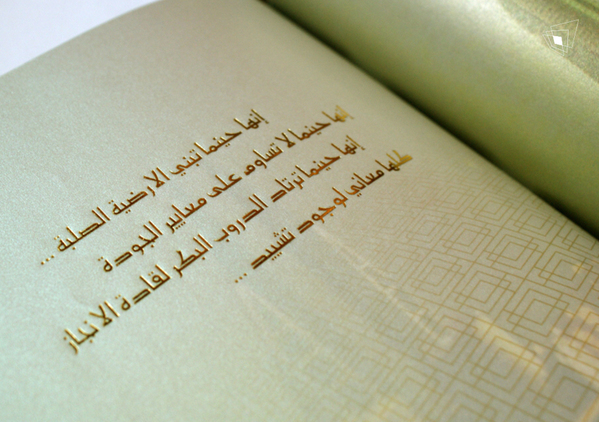 إنها حينما تبني الارضية الصلبة ...
إنها حينما لا تساوم على معايير الجودة
إنها حينما ترتاد الدروب البكر لقادة الانجاز
كلها معاني لوجود تشييد ...